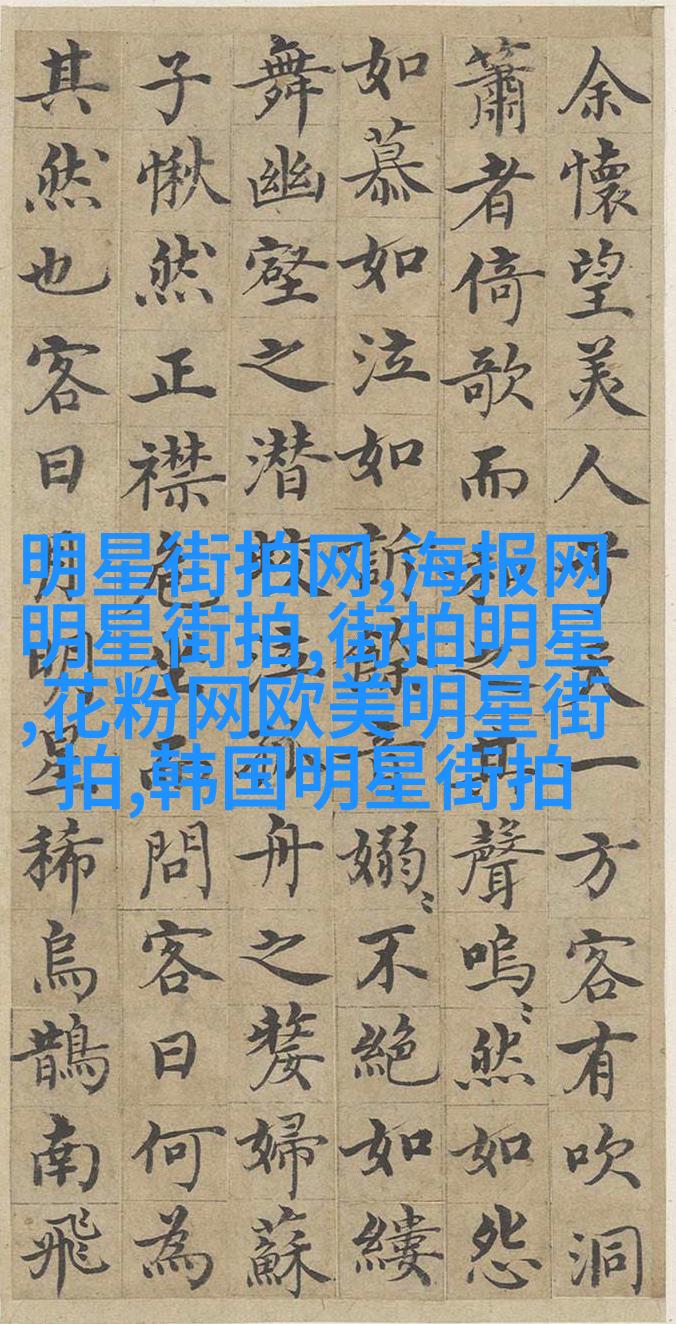 余懷望美人兮天一方客有吹洞
簫者倚歌而和之其聲嗚〻然如怨
如慕如泣如訴餘音嫋〻不絶如縷
舞幽壑之潛蛟泣孤舟之嫠婦蘇
子愀然正襟危坐而問客曰何為
其然也客曰月明星稀烏鵲南飛
明星街拍网,海报网
明星街拍,街拍明星
,花粉网欧美明星街
拍,韩国明星街拍